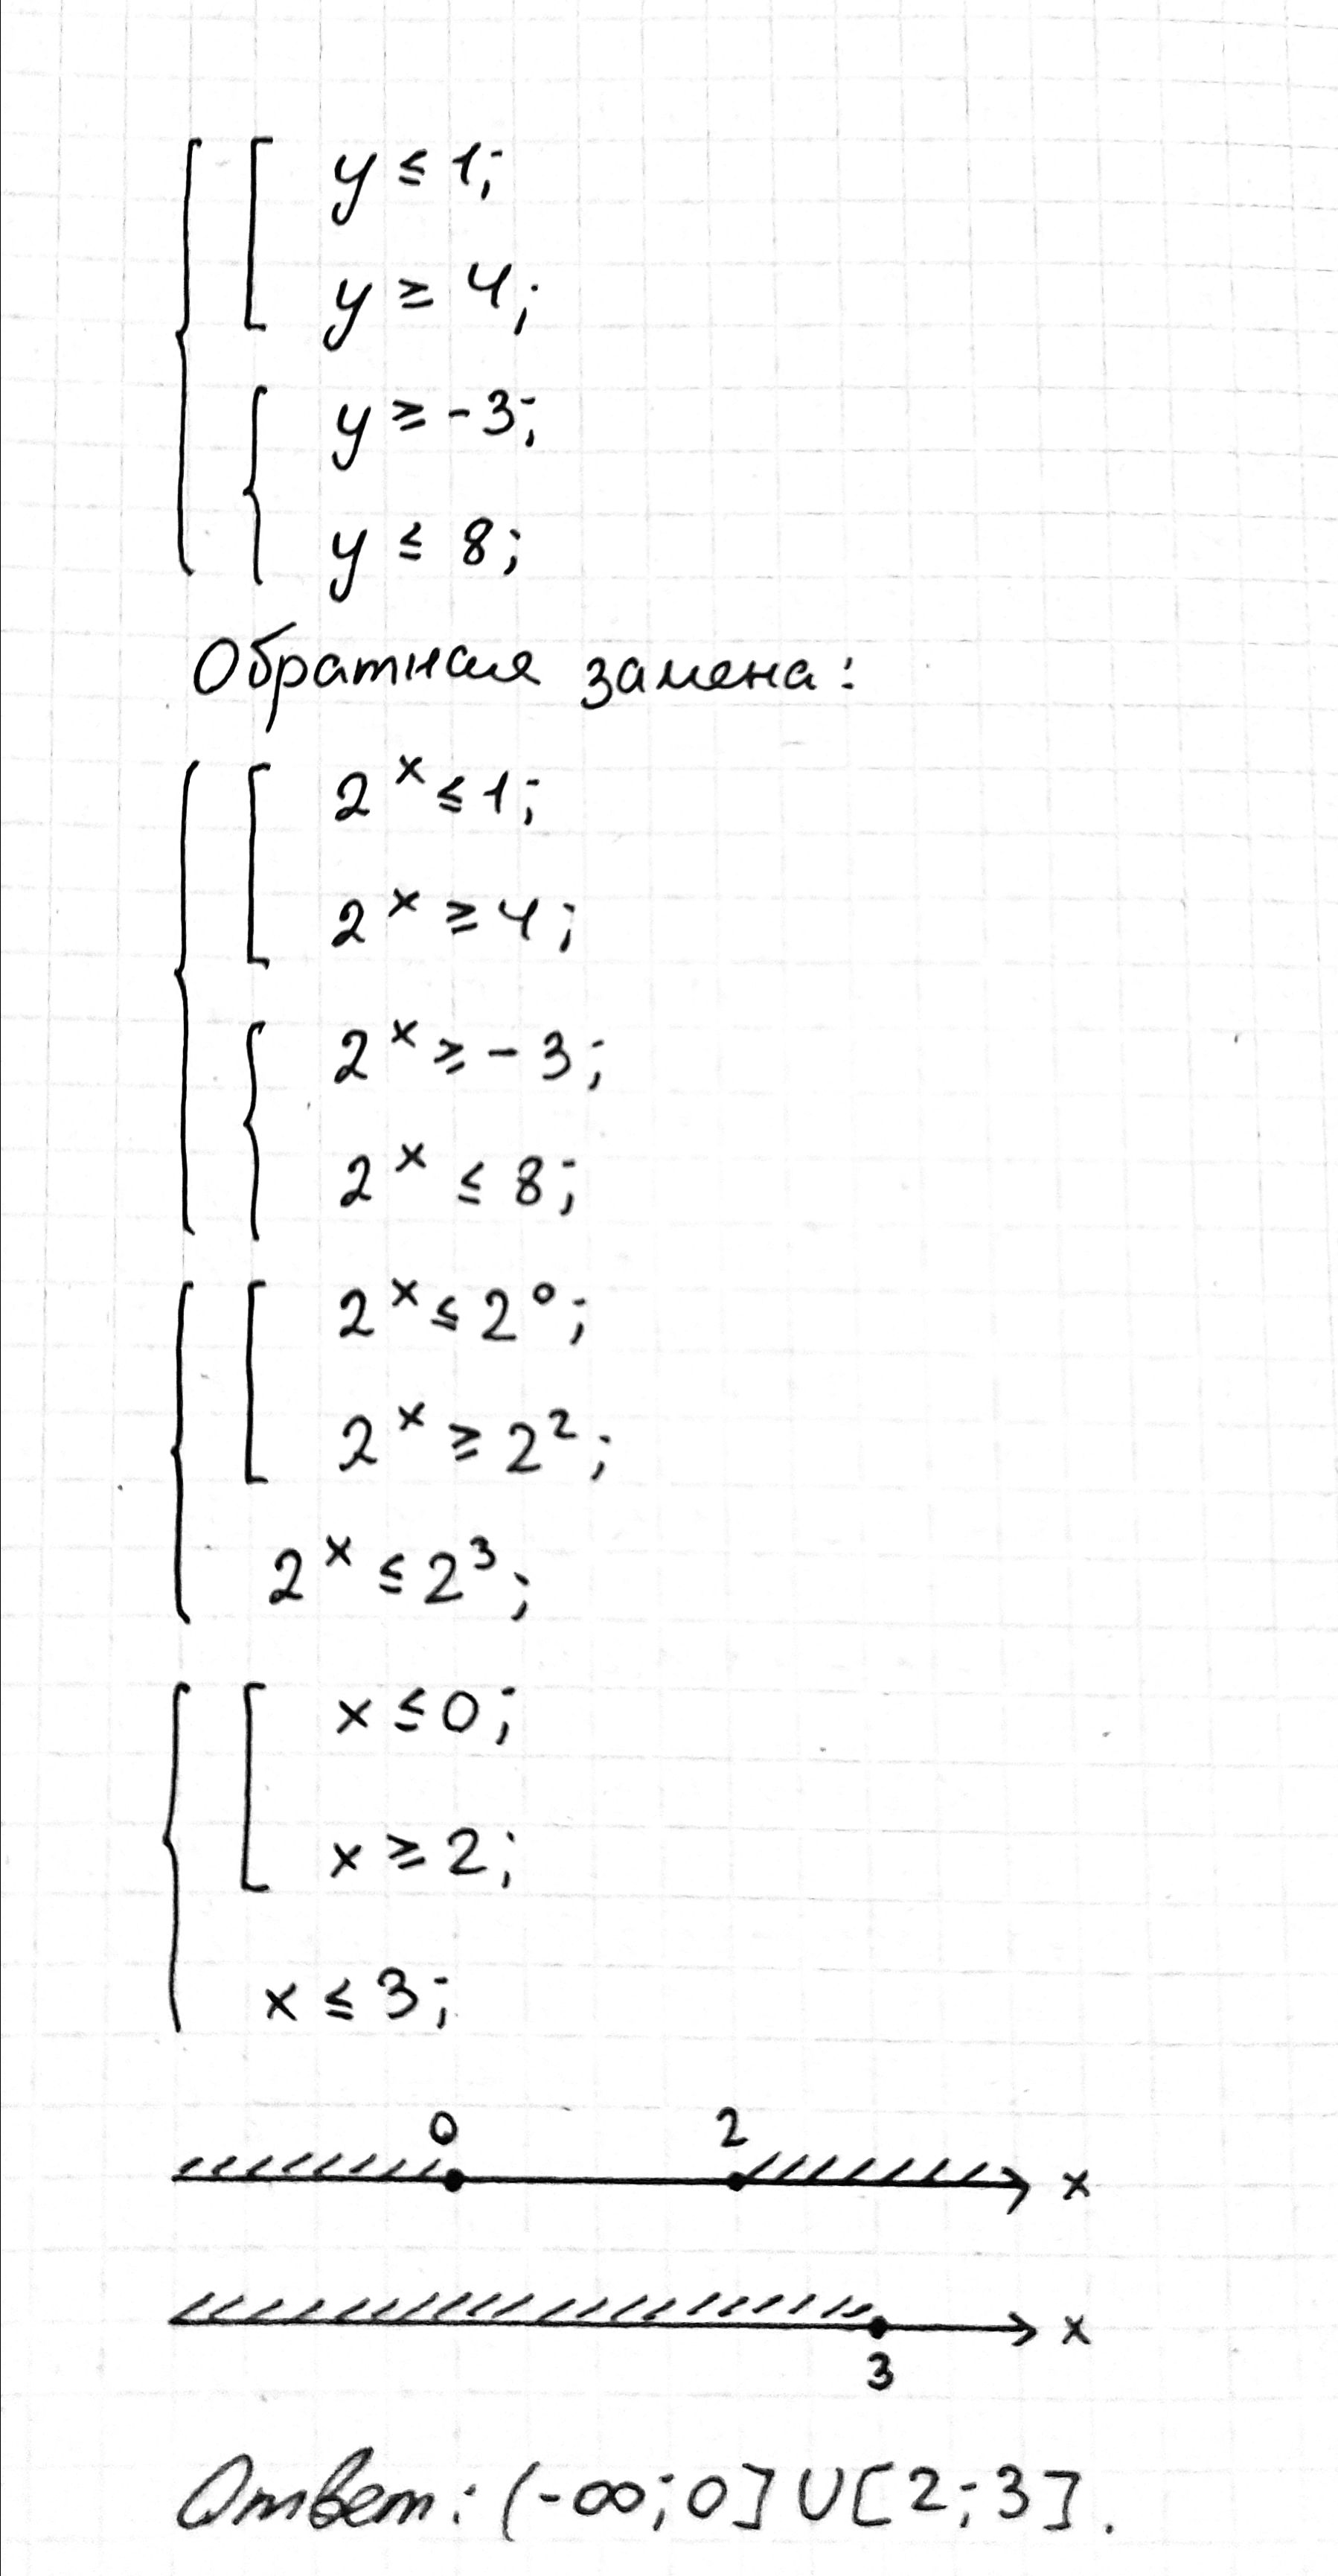 y ≤ 1;
y ≥ 4;
y ≥ -3;
y ≤ 8;
Обратная замена:
2^x ≤ 1;
2^x ≥ 4;
2^x ≥ -3;
2^x ≤ 8;
2^x ≤ 2^0;
2^x ≥ 2^2;
2^x ≤ 2^3;
x ≤ 0;
x ≥ 2;
x ≤ 3;
0 2
x
x
3
Ответ: (-∞; 0] ∪ [2; 3].